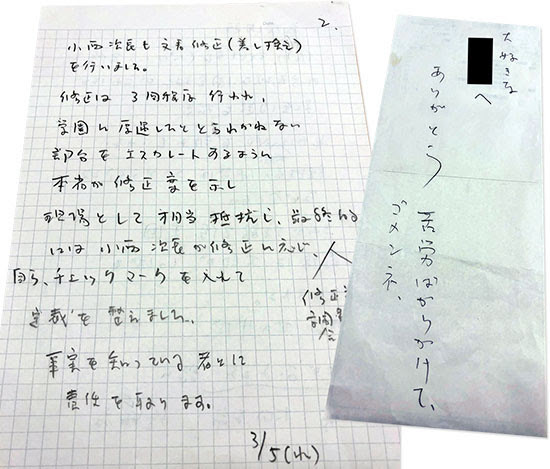 2.
小西次長も文書修正(差し換え)
を行いました。
修正は3回程度行われ、
学園に厚遇したととられかねない
部分をエスカレートするように
本省が修正案を示し
現場として相当抵抗し、最終的
には小西次長が修正に応じ、
自ら、チェックマークを入れて
定裁を整えました。
事実を知っている者として
責任を取ります。
3/5(水)
大好きな
へ
ありがとう
苦労ばかりかけて、
ゴメンネ、